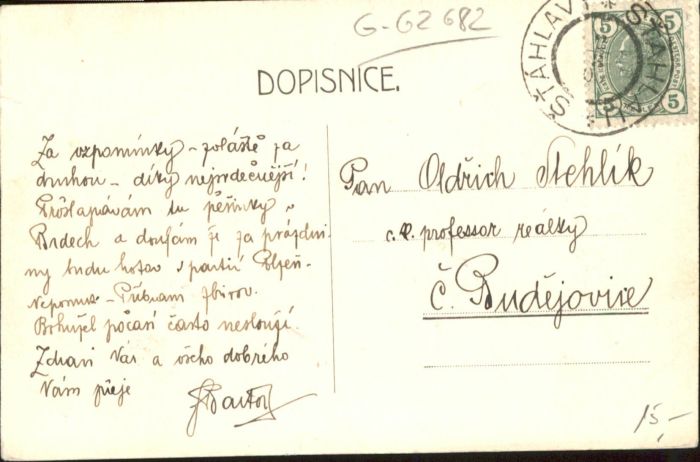 G-G2 682
DOPISNICE.
ŠŤÁHLAV
5 5
5 5
Za vzpomínky – zvláště za
druhou – díky nejsrdečnější!
Prošlapávám tu pěšinky v
Brdech a doufám že za prázdni-
ny budu hotov s partií Plzeň-
Nepomuk – Příbram Zbirov.
Bohužel počasí často neslouží.
Zdraví Vás a všeho dobrého
Vám přeje
Pan Oldřich Stehlík
c. k. professor reálky
Č. Budějovice
15,-